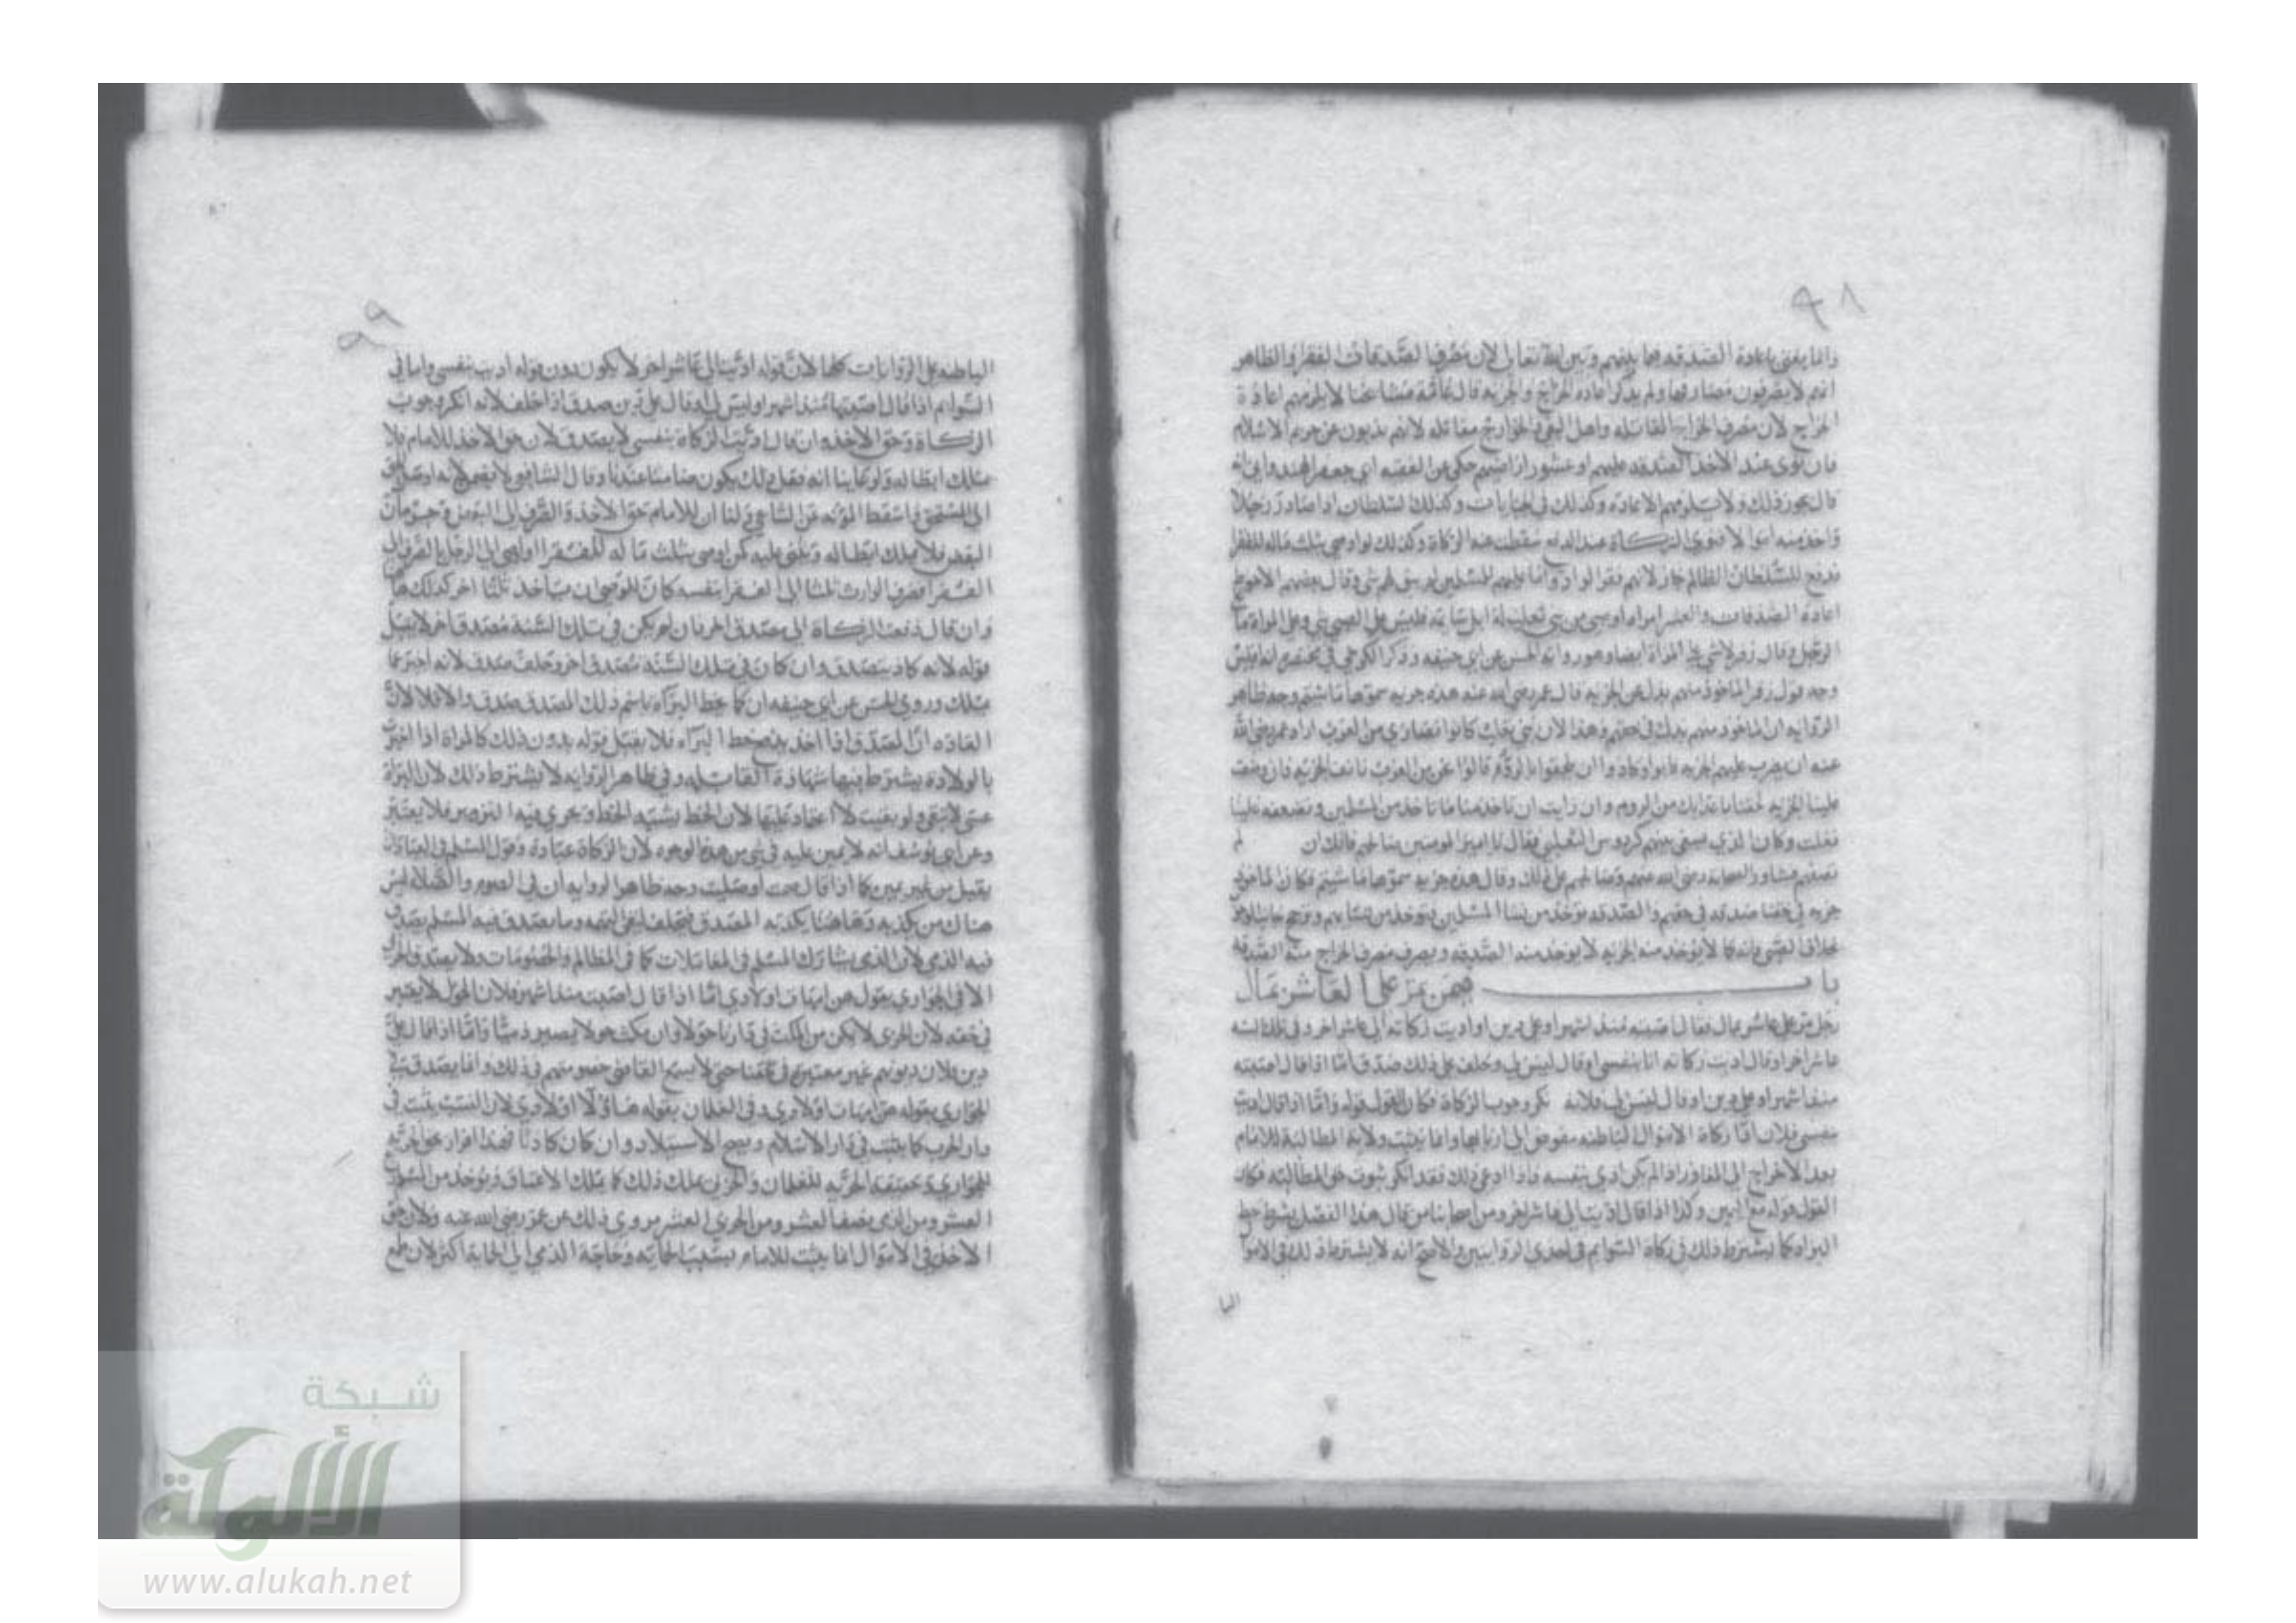 ٩٨
وانما يفتى باعادة الصدقه فيما بينهم وبين الله تعالى لان مصرف الصدقات الفقرا والظاهر
انهم لا يصرفون مصارفها ولم يذكر اعادة الخراج والجزيه قال عامة مشايخنا لا يلزمهم اعادة
الخراج لان مصرف الخراج المقاتله واهل البغى والخوارج مقاتله لانهم يذبون عن حريم الاسلام
فان نوى عند الاخذ الصدقه عليهم او عشور اراضيهم حكي عن الفقيه ابي جعفر الهندوانى انه
قال يجوز ذلك ولا يلزمهم الاعاده وكذلك في الجبايات وكذلك السلطان اذا صادر رجلا
واخذ منه اموالا فنوى الزكاة عند الدفع سقطت عنه الزكاة وكذلك لو اوصى بثلث ماله للفقرا
فدفع للسلطان الظالم جاز لانهم فقرا لو ادوا ما عليهم للمسلمين لم يبق لهم شي وقال بعضهم الاحوط
اعادة الصدقات والعشر امراه او صبى من بني تغلب له ابل سايمه فليس على الصبي شي وعلى المراة ما على
الرجل وقال زفر لا شي على المراة ايضا وهو رواية الحسن عن ابي حنيفه وذكر الكرخي في مختصره
وجه قول زفر الماخوذ منهم بدل عن الجزيه قال عمر رضي الله عنه هذه جزيه سموها ما شيتم وجه ظاهر
الروايه ان الماخوذ منهم بدل في حقهم وهذا لان بني تغلب كانوا نصارى من العرب اراد عمر رضي الله
عنه ان يضرب عليهم الجزيه فابوا وكادوا ان يلحقوا بالروم قالوا نحن من العرب نانف الجزيه فان وضعت
علينا الجزيه لحقنا باعدايك من الروم وان رايت ان تاخذ منا ما تاخذ من المسلمين وتضعفه علينا
فعلت وكان الذي يسعى بينهم كردوس التغلبي فقال يا امير المومنين صالحهم فانك ان لم
تصالحهم فشاور الصحابه رضي الله عنهم وصالحهم على ذلك وقال هذه جزيه سموها ما شيتم فكان الماخوذ
جزيه في حقنا صدقه في حقهم والصدقه توخذ من نسا المسلمين فتوخذ من نسايهم
بخلاف الصبي فانه كما لا يوخذ منه الجزيه لا يوخذ منه الصدقه ويصرف مصرف الخراج
باب فيمن يمر على العاشر بمال
رجل مر على عاشر بمال فقال اصبته منذ اشهر او علي دين او اديت زكاته الى عاشر اخر وفي تلك السنه
عاشر اخر او قال اديت زكاته انا بنفسى او قال ليس لي وحلف على ذلك صدق اما اذا قال اصبته
منذ اشهر او علي دين او قال ليس لي فلانه نكر وجوب الزكاة فكان القول قوله واما اذا قال اديت
بنفسى فلان اداء زكاة الاموال الباطنه مفوض الى اربابها وانما يثبت ولاية المطالبة للامام
بعد الاخراج الى المفاوز اذا لم يكن ادى بنفسه فاذا ادعى ذلك فقد انكر ثبوت حق المطالبه فكان
القول قوله مع اليمين وكذا اذا قال اديت الى عاشر اخر ومن اصحابنا من قال هذا الفصل يشترط خط
البراه كما يشترط ذلك في زكاة السوايم في احدى الروايتين والاصح انه لا يشترط ذلك في الاموال
البا
٩٩
الباطنه على الروايات كلها لان قوله اديت الى عاشر اخر لا يكون دون قوله اديت بنفسى واما في
السوايم اذا قال اصبتها منذ اشهر او ليس لي او قال علي دين صدق اذا حلف لانه انكر وجوب
الزكاة وحق الاخذ وان قال اديت الزكاة بنفسى لا يصدق لان حق الاخذ للامام فلا
يملك ابطاله ولو عاينا انه فعل ذلك يكون ضامنا عندنا وقال الشافعي لا يضمن لانه اوصل الحق
الى المستحق واسقط المؤنه عن الساعي ولنا ان للامام حق الاخذ والصرف الى
البعض فلا يملك ابطاله وبقى عليه كمن اوصى بثلث ماله للفقرا واوصى الى رجل بالصرف الى
الفقرا فصرف الوارث ثلثا الى الفقرا بنفسه كان للوصي ان ياخذ ثلثا اخر كذلك هنا
وان قال دفعت الزكاة الى مصدق اخر فان لم يكن في تلك السنة مصدق اخر لا يقبل
قوله لانه كاذب بصدقه وان كان في تلك السنة مصدق اخر وحلف صدق لانه اخبر عما
يملك وروى الحسن عن ابي حنيفه ان كان خط البراة باسم ذلك المصدق صدق والا فلا لان
العاده ان المصدق اذا اخذ يدفع خط البراه فلا يقبل قوله بدون ذلك كالمراة اذا اخبرت
بالولادة يشترط فيها شهادة القابله وفي ظاهر الروايه لا يشترط ذلك لان البراة
عسى لا تبقى ولو بقيت لا اعتماد عليها لان الخط يشبه الخط ويجرى فيه التزوير فلا يعتبر
وعن ابي يوسف انه لا يمين عليه في شى من هذه الوجوه لان الزكاة عبادة وقول المسلم في العبادات
يقبل من غير يمين كما اذا قال صمت او صليت وجه ظاهر الروايه ان في الصوم والصلاة ليس
هناك من يكذبه وهاهنا يكذبه المصدق فيحلف لنفى التهمه وما يصدق فيه المسلم يصدق
فيه الذمى لان الذمى يشارك المسلم في المعاملات كما في المظالم والخصومات ولا يصدق الحربى
الا في الجواري يقول هن امهات اولادي اما اذا قال اصبت منذ اشهر فلان الحول لا يعتبر
في حقه لان الحربى لا يمكن من المكث في دارنا حولا وان مكث حولا يصير ذميا واما اذا قال علي
دين فلان ديونهم غير معتبره في حقنا حتى لا يسمع القاضى خصومتهم في ذلك وانما يصدق في
الجوارى بقوله هن امهات اولادي وفي الغلمان بقوله هاولا اولادي لان النسب يثبت في
دار الحرب كما يثبت في دار الاسلام ويصح الاستيلاد وان كان كاذبا فهذا اقرار بحق الحريه
للجواري وحقيقة الحريه للغلمان والحربى يملك ذلك كما يملك الاعتاق ويوخذ من المسلم ربع
العشر ومن الذمى نصف العشر ومن الحربي العشر مروي ذلك عن عمر رضي الله عنه ولان حق
الاخذ في الاموال انما يثبت للامام بسبب الحمايه وحاجة الذمي الى الحماية اكثر لان طمع
شبكة
الألوكة
www.alukah.net